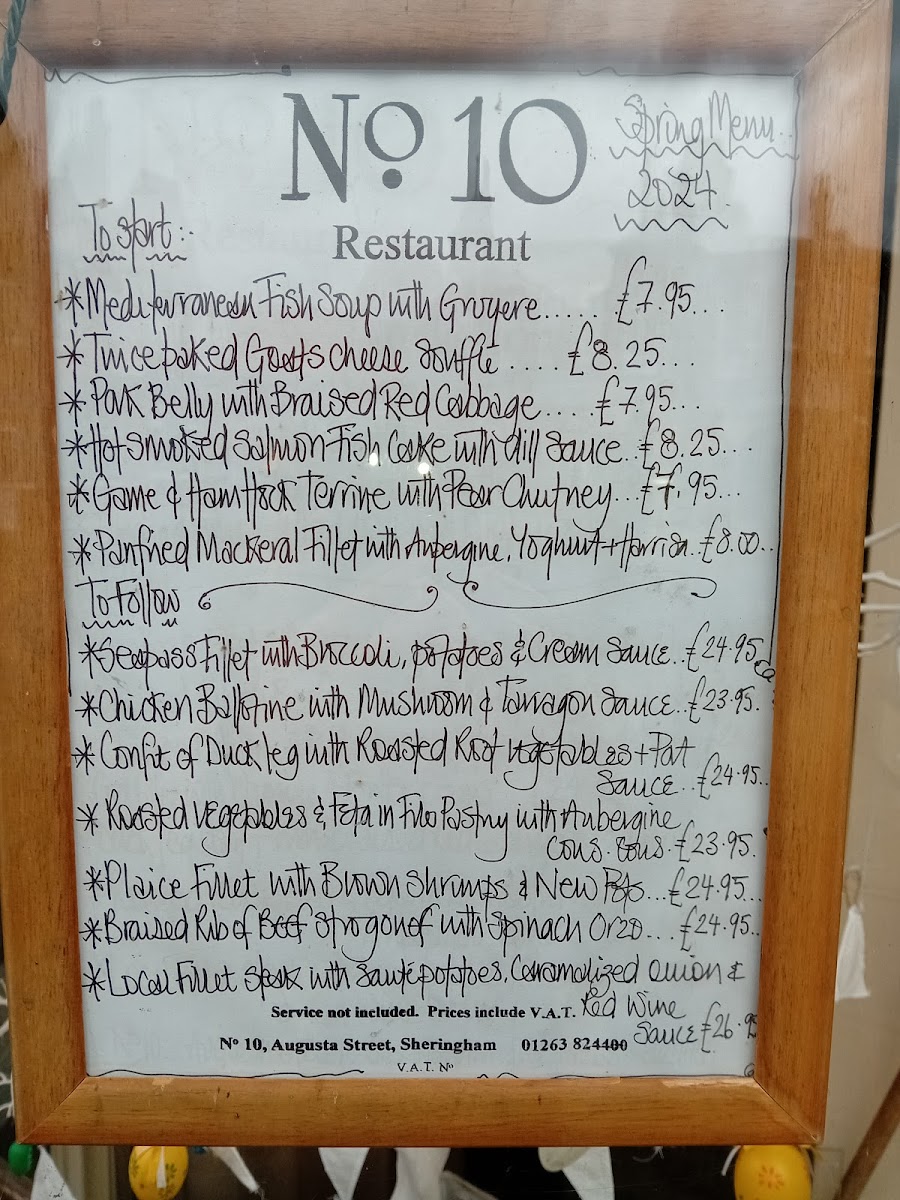 No 10
Spring Menu..
2024.
Restaurant
To start:-
*Mediterranean Fish Soup with Gruyere..... £7.95...
*Twice baked Goats cheese Souffle .... £8.25...
*Pork Belly with Braised Red Cabbage.... £7.95...
*Hot Smoked Salmon Fish Cake with dill Sauce..£8.25...
*Game & Ham Hock Terrine with Pear Chutney...£7.95...
*Panfried Mackeral Fillet with Aubergine, Yoghurt + Harrisa..£8.00..
To Follow
*Seabass Fillet with Broccoli, potatoes & Cream Sauce..£24.95
*Chicken Ballotine with Mushroom & Tarragon Sauce..£23.95.
*Confit of Duck leg with Roasted Root vegetables + Port
Sauce..£24.95..
*Roasted vegetables & Feta in Filo Pastry with Aubergine
cous.cous.£23.95.
*Plaice Fillet with Brown Shrimps & New Pots...£24.95...
*Braised Rib of Beef Strogonof with Spinach Orzo....£24.95..
*Local Fillet steak with sauté potatoes, Caramalized onion &
Red Wine
Sauce £26.95
Service not included. Prices include V.A.T.
No 10, Augusta Street, Sheringham 01263 824400
V.A.T. No